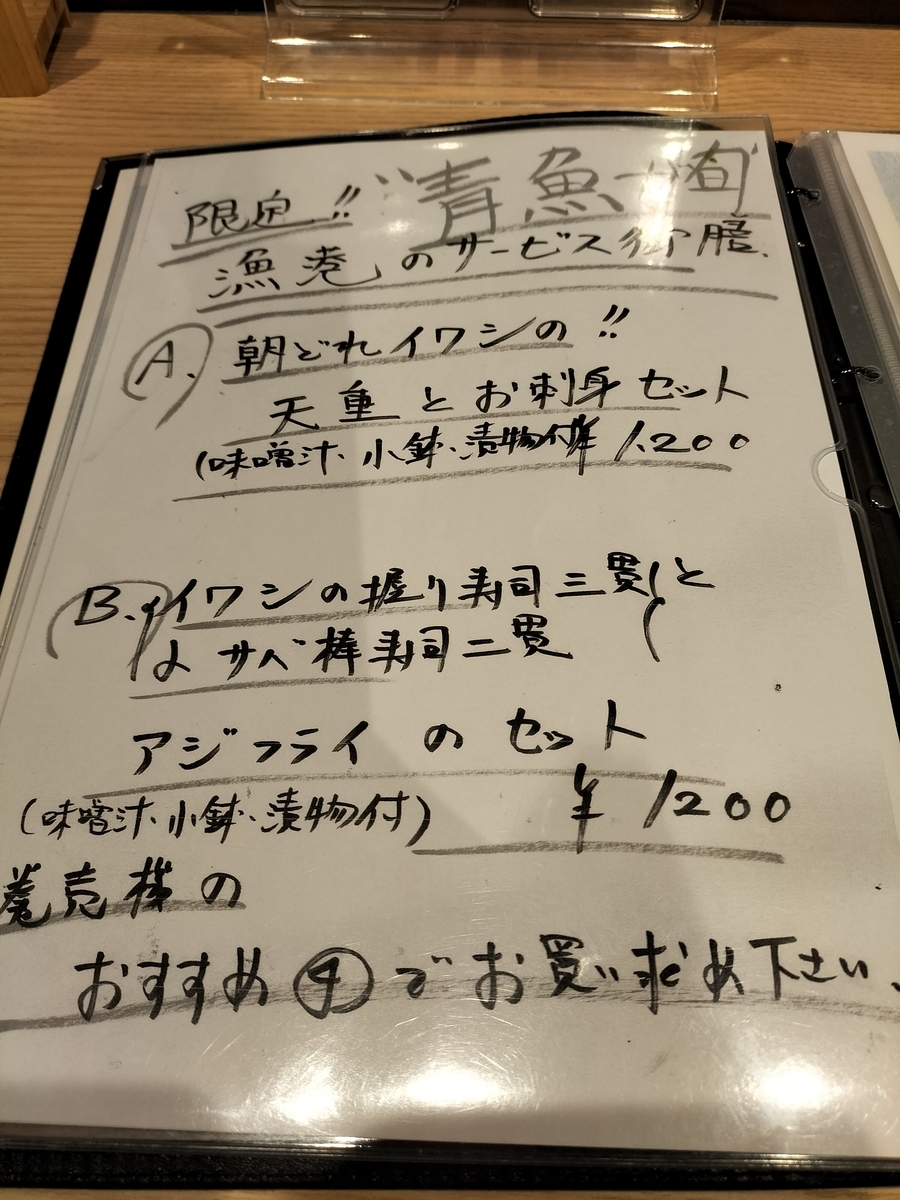 限定!! "青魚
漁港のサービス御膳.
A. 朝どれイワシの!!
天重とお刺身セット
(味噌汁、小鉢、漬物付 ¥1.200
B. イワシの握り寿司三貫と
サバ棒寿司二貫
アジフライのセット
(味噌汁、小鉢、漬物付) ¥1200
券売機の
おすすめ④でお買い求め下さい.